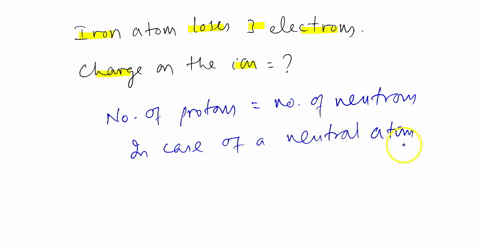 Iron atom loses 3 electrons.
Charge on the ion = ?
No. of protons = no. of neutrons
In case of a neutral atom